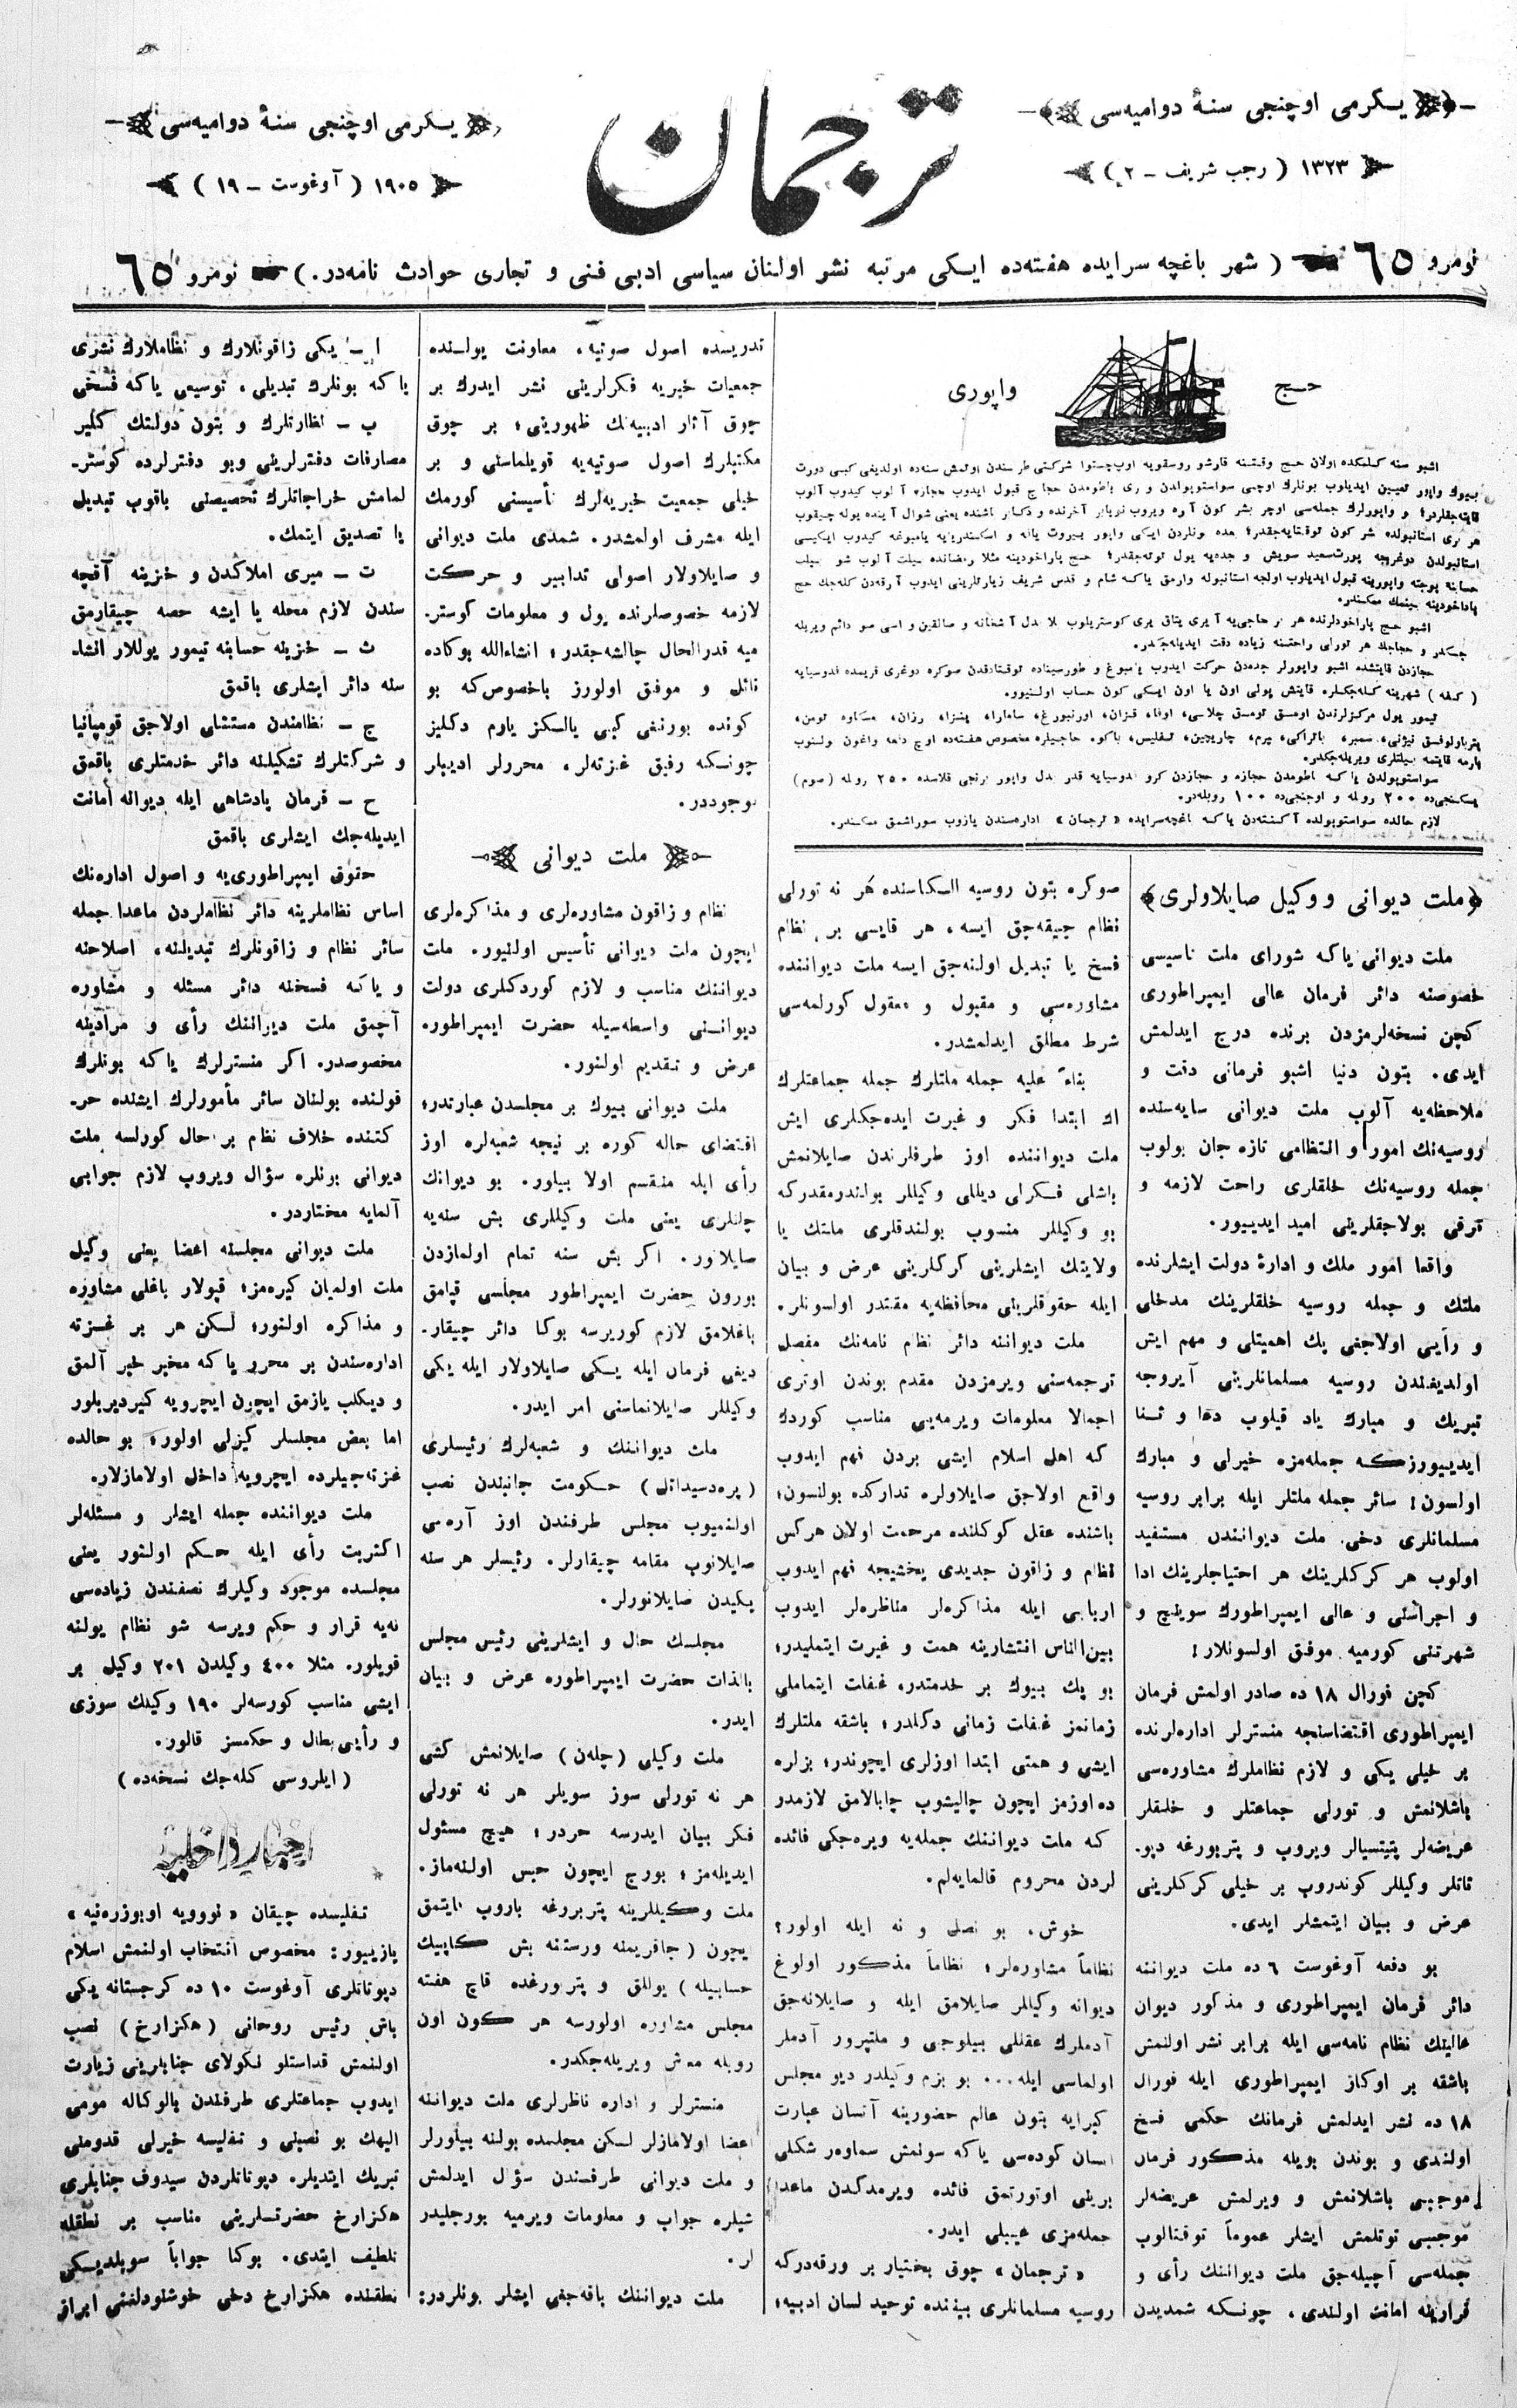 یـكرمی اوچنجی سنهٔ دوامیه‌سی
۱۳۲۳ ( رجب شریف ـ ۲ )
ترجمان
یـكرمی اوچنجی سنهٔ دوامیه‌سی
۱۹۰۵ ( آوغوست ـ ۱۹ )
نومرو ٦٥ ( شهر باغچه سرایده هفته‌ده ایـكی مرتبه نشر اولنان سیاسی ادبی فنی و تجاری حوادث نامه‌در. ) نومرو ٦٥
حـج
واپوری
اشبو سنه كـلمكده اولان حـج وقـتـنه قارشو روسقویه اوبـچستوا شركتی طرفندن اولمش سنه‌ده اولدیغی كبی دورت
لازم حالده سواستوپولده آكـنتدن یاكه باغچه‌سرایده « ترجمان » اداره‌سندن یازوب سوراشمق ممكندر.
﴿ملت دیوانی و وكیل صایلاولری﴾
ملت دیوانی یاكه شورای ملت تاسیسی
خصوصنه دائر فرمان عالی ایمپراطوری
كچن نسخه‌لرمزدن برنده درج ایدلمش
ایدی. بتون دنیا اشبو فرمانی دقت و
ملاحظه‌یه آلوب ملت دیوانی سایه‌سنده
روسیه‌نك امور و انتظامی تازه جان بولوب
جمله روسیه‌نك خلقلری راحت لازمه و
ترقی بولاجقلرینی امید ایدییور.
واقعا امور ملك و ادارهٔ دولت ایشلرنده
ملتك و جمله روسیه خلقلرینك مدخلی
و رأیی اولاجغی پك اهمیتلی و مهم ایش
اولدیغندن روسیه مسلمانلرینی آیروجه
تبریك و مبارك یاد قیلوب دعا و ثـنا
ایدییورزكـه جمله‌مزه خیرلی و مبارك
اولسون! سائر جمله ملتلر ایله برابر روسیه
مسلمانلری دخی ملت دیوانندن مستفید
اولوب هر كركلرینك هر احتیاجلرینك ادا
و اجراسنی و عالی ایمپراطورك سوینچ و
شهرتنی كورمیه موفق اولسونلار!
كچن فورال ۱۸ ده صادر اولمش فرمان
ایمپراطوری اقتضاسنجه منسترلر اداره‌لرنده
بر خیلی یكی و لازم نظاملرك مشاوره‌سی
باشلانمش و تورلی جماعتلر و خلـقلر
عریضه‌لر پتیتسیالر ویروب و پتربورغه دپو-
تاتلر وكیللر كوندروب بر خیلی كركلرینی
عرض و بیان ایتمشلر ایدی.
بو دفعه آوغوست ٦ ده ملت دیواننه
دائر فرمان ایمپراطوری و مذكور دیوان
عالینك نظام نامه‌سی ایله برابر نشر اولنمش
باشقه بر اوكاز ایمپراطوری ایله فورال
۱۸ ده نشر ایدلمش فرمانك حكمی فسخ
اولندی و بوندن بویله مذكـور فرمان
موجبی باشلانمش و ویرلمش عریضه‌لر
موجبی توتلمش ایشلر عموماً توقتالوب
جمله‌سی آچیله‌جق ملت دیواننك رأی و
قرارینه امانت اولندی. چونـكه شمدیدن
صوكره بتون روسیه الـكاسنده هر نه تورلی
نظام چیقه‌جق ایسه، هر قایسی بر نظام
فسخ یا تبدیل اولنه‌جق ایسه ملت دیواننده
مشاوره‌سی و مقبول و معقول كورلمه‌سی
شرط مطلق ایدلمشدر.
بناءً علیه جمله ملتلرك جمله جماعتلرك
اك ابتدا فكر و غیرت ایده‌جكلری ایش
ملت دیواننده اوز طرفلرندن صایلانمش
باشلی فـكرلی دیللی وكیللر بولندرمقدركه
بو وكیللر منسوب بولندقلری ملتك یا
ولایتك ایشلرینی كركلرینی عرض و بیان
ایله حقوقلرینی محافظه‌یه مقتدر اولسونلر.
ملت دیواننه دائر نظام نامه‌نك مفصل
ترجمه‌سنی ویرمزدن مقدم بوندن اوتری
اجمالا معلومات ویرمه‌یی مناسب كوردك
كه اهل اسلام ایشی بردن فهم ایدوب
واقع اولاجق صایلاولره تداركده بولنسون؛
باشنده عقل كوكلنده مرحمت اولان هركس
نظام و زاقون جدیدی یخشیجه فهم ایدوب
اربابی ایله مذاكره‌لر مناظره‌لر ایدوب
بین‌الناس انتشارینه همت و غیرت ایتملیدر؛
بو پك بیوك بر خدمتدر. غفلت ایتمالی
زمانمز غفلت زمانی دكلدر؛ باشقه ملتلرك
ایشی و همتی ابتدا اوزلری ایچوندر؛ بزلره
ده اوزمز ایچون چالیشوب چابالامق لازمدر
كـه ملت دیواننك جمله‌یه ویره‌جكی فائده
لردن محروم قالمایه‌لم.
خوش، بو نصل و نه ایله اولور؟
نظاماً مشاوره‌لر؛ نظاماً مذكـور اولوغ
دیوانه وكیللر صایلامق ایله و صایلانه‌جق
آدملرك عقللی بیلوجی و ملتپرور آدملر
اولماسی ایله... بو بزم وكیلدر دیو مجلس
كبرایه بتون عالم حضورینه آنسان عبارت
انسان كوده‌سی یاكه سونمش سماوه‌ر شكلی
برینی اوتورتمق فائده ویرمدكـدن ماعدا
جمله‌مزی عیبلی ایدر.
« ترجمان » چوق بختیار بر ورقه‌دركه
روسیه مسلمانلری بیننده توحید لسان ادبیه؛
تدریسده اصول صوتیه، معاونت یولـنده
جمعیات خیریه فكرلرینی نشر ایدرك بر
چوق آثار ادبیه‌نك ظهورینی؛ بر چوق
مكتبلرك اصول صوتیه‌یه قویلماسنی و بر
خیلی جمعیت خیریه‌لرك تأسیسنی كورمك
ایله مشرف اولمشدر. شمدی ملت دیوانی
و صایلاولار اصولی تدابیر و حركت
لازمه خصوصلرنده یول و معلومات كوستر-
میه قدرالحال چالشه‌جقدر؛ انشاءالله بوكاده
نائل و موفق اولورز باخصوص‌كه بو
كونده بورنغی كبی یالـكز یاوم دكلیز
چونـكه رفیق غزته‌لر، محررلر ادیبلر
موجوددر.
ملت دیوانی
نظام و زاقون مشاوره‌لری و مذاكره‌لری
ایچون ملت دیوانی تأسیس اولنیور. ملت
دیواننك مناسب و لازم كوردكلری دولت
دیوانـی واسطه‌سیله حضرت ایمپراطور-
عرض و تـقدیم اولنور.
ملت دیوانی بیوك بر مجلسدن عبارتدر؛
اقتضای حاله كوره بر نیجه شعبه‌لره اوز
رأی ایله منقسم اولا بیلور. بو دیوانك
چلنلری یعنی ملت وكیللری بش سنه‌یه
صایلانور. اكر بش سنه تمام اولمازدن
بورون حضرت ایمپراطور مجلسی قپامق
باغلامق لازم كوریرسه بوكا دائر چیقار-
دیغی فرمان ایله یـكی صایلاولار ایله یكی
وكیللر صایلانماسنی امر ایدر.
ملت دیواننك و شعبه‌لرك رئیسلری
( پره‌دسیداتل ) حـكومت جانبندن نصب
اولنمیوب مجلس طرفندن اوز آره‌سی
صایلانوب مقامه چیقارلر. رئیسلر هر سنه
یكیدن صایلانورلر.
مجلسك حال و ایشلرینی رئیس مجلس
بالذات حضرت ایمپراطوره عرض و بیان
ایدر.
ملت وكیلی ( چلەن ) صایلانمش كشی
هر نه تورلی سوز سویلر هر نه تورلی
فكر بیان ایدرسه حردر؛ هیچ مسئول
ایدیله‌مز؛ بورج ایچون حبس اولنه‌ماز.
ملت وكـیللرینه پتربروغه باروب قایتمق
ایچون ( جافریمنه ورستنه بش كـاپیك
حسابیله ) یوللق و پتربورغده قاچ هفته
مجلس مشاوره اولورسه هر كـون اون
روبله معاش ویریله‌جكدر.
منسترلر و اداره ناظرلری ملت دیواننه
اعضا اولامازلر لـكن مجلسده بولنه بیلورلر
و ملت دیوانی طرفـندن سؤال ایدلمش
شیلره جواب و معلومات ویرمیه بورجلیدر
لر.
ملت دیواننك باقه‌جغی ایشلر بونلردر:
ا ـ یكی زاقونلارك و نظاملارك نشری
یاكه بونلرك تبدیلی، توسیعی یاكه فسخی
ب ـ نظارتلرك و بتون دولتك كلیر
مصارفات دفترلرینی وبو دفترلرده كوستر-
لمامش خراجاتلرك تخصیصنی باقوب تبدیل
یا تصدیق ایتمك.
ت ـ میری املاكدن و خزینه آقچه
سندن لازم محله یا ایشه حصه چیقارمق
ث ـ خزینه حسابنه تیمور یوللار انشا-
سنه دائر ایشلری باقمق
ج ـ نظامندن مستثنی اولاجق قومپانیا
و شركتلرك تشكیلنه دائر خدمتلری باقمق
ح ـ فرمان پادشاهی ایله دیوانه امانت
ایدیله‌جك ایشلری باقمق
حقوق ایمپراطوری‌یه و اصول اداره‌نك
اساس نظاملرینه دائر نظاملردن ماعدا جمله
سائر نظام و زاقونلرك تبدیلنه، اصلاحنه
و یاكه فسخنه دائر مسئله و مشاوره
آچمق ملت دیواننك رأی و مرادینه
مخصوصدر. اكر منسترلرك یاكه بونلرك
قولنده بولنان سائر مأمورلرك ایشنده حر-
كتنده خلاف نظام بر حال كورلسه ملت
دیوانی بونلره سؤال ویروب لازم جوابی
آلمایه مختاردر.
ملت دیوانی مجلسنه اعضا یعنی وكیل
ملت اولمیان كیره‌مز؛ قپولار باغلی مشاوره
و مذاكره اولنور؛ لـكن هر بر غـزته
اداره‌سندن بر محرر یاكه مخبر خبر آلمق
و دیكلب یازمق ایچون ایچرویه كیردیریلور
اما بعض مجلسلر كیزلی اولور؛ بو حالده
غزته‌جیلرده ایچرویه داخل اولامازلار.
ملت دیواننده جمله ایشلر و مسئله‌لر
اكثریت رأی ایله حـكم اولنور یعنی
مجلسده موجود وكیلرك نصفندن زیاده‌سی
نه‌یه قرار و حكم ویرسه شو نظام یولنه
قویلور. مثلا ٤٠٠ وكیلدن ۲۰۱ وكیل بر
ایشی مناسب كورسه‌لر ۱۹۰ وكیلك سوزی
و رأیی بطال و حكمسز قالور.
( ایلروسی كله‌جك نسخه‌ده )
اخبار داخلیه
تـفلیسده چیقان « نوویه اوبوزره‌نیه »
یازییور: مخصوص انتخاب اولنمش اسلام
دپوتاتلری آوغوست ۱۰ ده كرجستانه یكی
باش رئیس روحانی ( هكزارخ ) نصب
اولنمش قداستلو نـكولای جنابلرینی زیارت
ایدوب جماعتلری طرفندن بالوكاله مومی
الیهك بو نصبنی و تـفلیسه خیرلی قدومنی
تبریك ایتدیلر. دپوتاتلردن سیدوف جنابلری
هكزارخ حضرتـلرینی مناسب بر نطقله
تلطیف ایتدی. بوكا جواباً سویلدیـكی
نطقنده هكزارخ دخی خوشنودلغنی ابراز